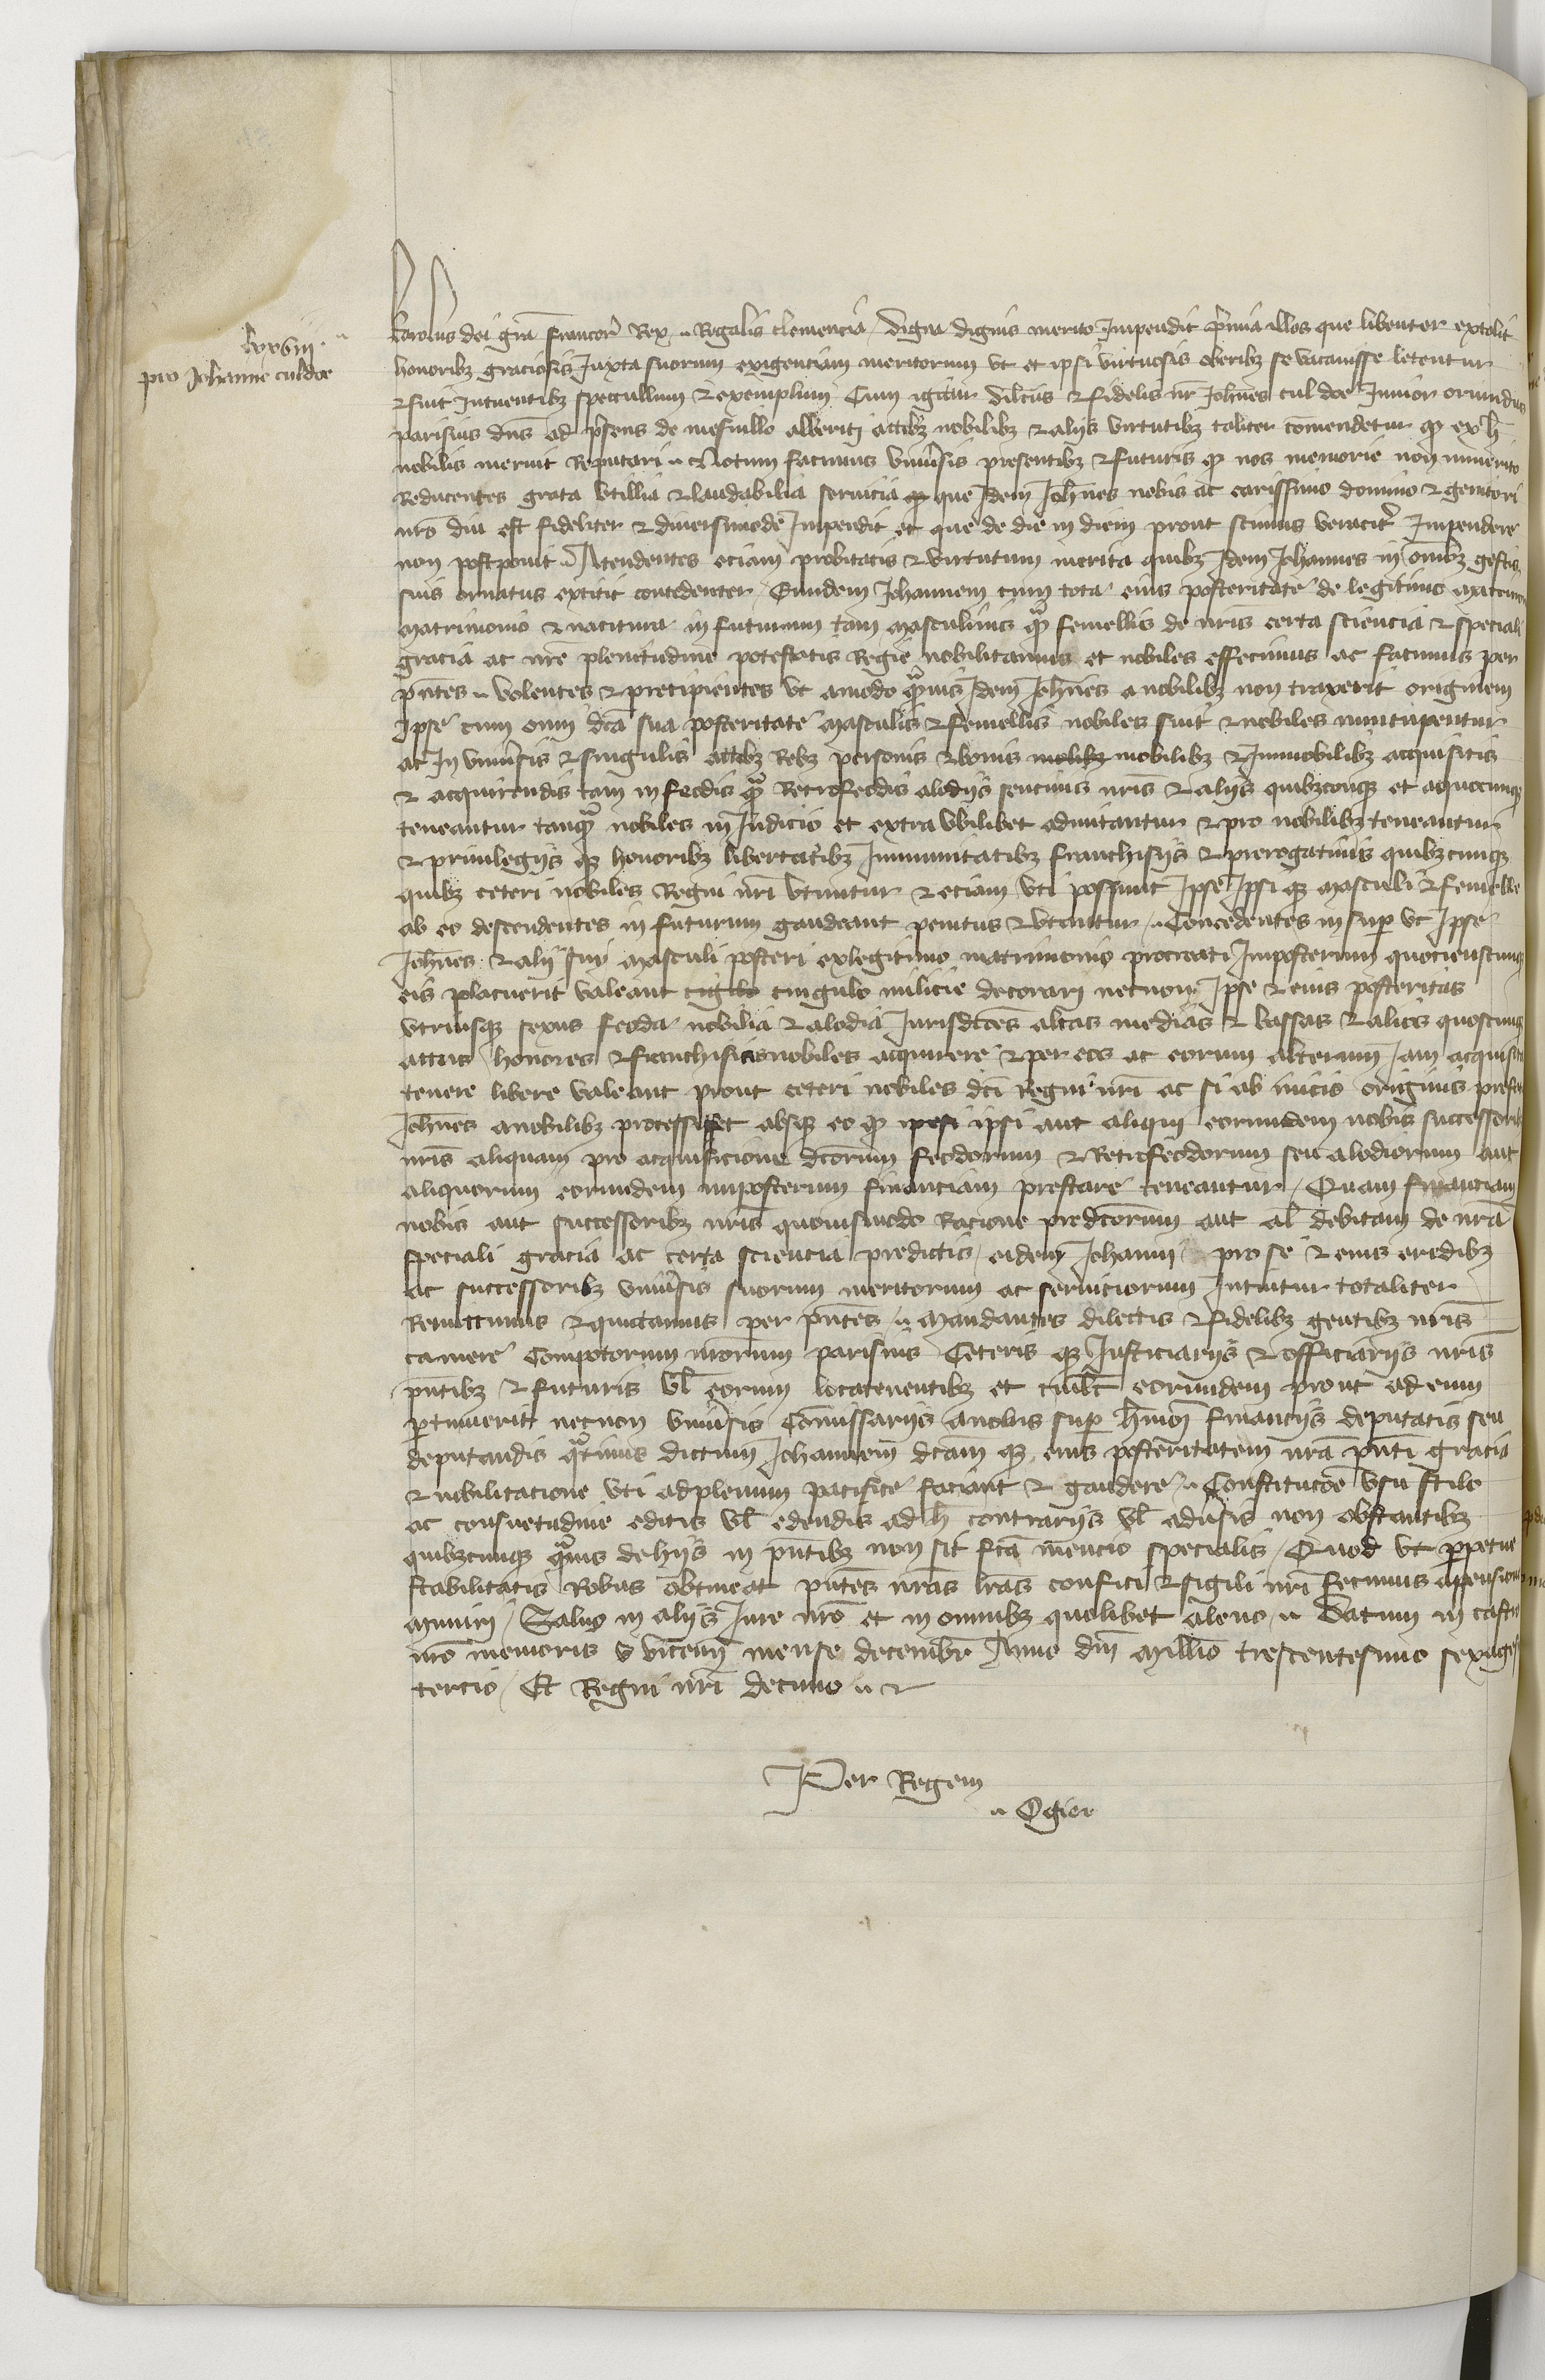 lxxviij.
pro Johanne culdoe
Karolus dei gra francor Rex Regalis clemencia digna dignis merito Impendit pmia illos que libenter extolit
honoribz graciosis Juxta suorum exigentiam meritorum vt et ipsi virtuosis operibz se vacauisse letentur
& sint Intuentibz specullum & exemplum Cum igitur dilcus & fidelis nr Johes cul doe Junior oriundus
parisius dns ad psens de mesnillo alberici actibz nobilibz & alijs virtutibz taliter comendetur qp ex h
nobilis meruit Reputari Notum facimus vniusis presentibz & futuris qp nos memorie non inmerito
Reducentes grata vtillia & laudabilia seruicia que Idem Johnes nobis ac carissimo domino & genitori
nro diu est fideliter & diuersimode Impendit et que de die in diem prout scimus veracitr Impendere
non postponit Atendentes eciam probitatis & virtutum merita quibz Idem Johannes in omibz gestis
suis ornatus extitit concedenter Eundem Johannem cum tota eius posteritate de legitimo
matrimonio & nacitura in futurum tam masculinis qm femellis de nris certa sciencia & speciali
gracia ac nre plenitudine potestatis Regie nobilitamus et nobiles effecimus ac facimus per
pntes volentes & precipientes vt amodo qmuis Idem Johnes a nobilibz non traxerit originem
Ipse cum omi dca sua posteritate masculis & femellis nobiles sint & nobiles nuncupentur
ac In vniusis & singulis actibz Rebz personis & bonis mobilibz & Inmobilibz acquisitis
& acquirendis tam in feodis qm Retrofeodis alodijs sentiuis nris & alijs quibzconqz et aquocunqz
teneantur tanqm nobiles in Iudicio et extra vbilibet admitantur & pro nobilibz teneantur
& priuilegijs qz honoribz libertatibz Inmunitatibz franchisijs & prerogatiuis quibzcunqz
quibz ceteri nobiles Regni nri vtuntur & eciam vti possunt Ipse Ipsi qz masculi & femelle
ab eo descendentes in futurum gaudeant penitus & vtantur Concedentes in sup vt Ipse
Johnes & alij sui masculi posteri exlegitimo matrimonio procreati Imposterum quocienscunqz
eis placuerit valeant cingulo milicie decorari necnon Ipse & eius posteritas
vtriusqz sexus feoda nobilia & alodia Jurisdcoes altas medias & bassas & alios quoscunqz
actus honores & franchisias nobiles acquirere & per eos ac eorum alterum Jam acquisita
tenere libere valeant prout ceteri nobiles dci Regni nri ac si ab inicio originis
Johnes anobilibz processisset absqz eo qp ipsi aut aliqui eorumdem nobis
nris aliquam pro acquisicione dcorum feodorum & Retrofeodorum seu alodiorum aut
aliquorum eorumdem imposterum financiam prestare teneantur Quam financiam
nobis aut successoribz nris quouismodo Racione predcorum aut al debitam de nra
speciali gracia ac certa sciencia predictis eidem Johanni pro se & eius eredibz
ac successoribz vniusis suorum meritorum ac seruiciorum Intuitur totaliter
Remittimus & quictamus per pntes Mandantes dilectis & fidelibz gentibz nris
camere Compotorum nrorum parisius Ceteris qz Justiciarijs & officiarijs nris
pntibz & futuris vl eorum locatenentibz et cuilt eorumdem prout ad eum
ptinuerit necnon vniusis Comissarijs anobis sup hmoi financijs deputatis seu
deputandis qtinus dictum Johannem dcam qz eius posteritatem nra pnti gracia
& nobilitacione vti adplenum pacifice faciant & gaudere Constitucoe vsu stilo
ac consuetudine editis vl edendis ad h contrarijs vl adusis non obstantibz
quibzcunqz qmuis dehijs in pntibz non sit fca mencio specialis Quod vt ppetue
stabilitatis Robus obtineat pntes nras lras confici & sigili nri fecimus apensione
muniri Saluo in alijs Jure nro et in omnibz quolibet alieno Datum in castro
nro nemoris vicenn mense decembr Anno dni Millio trescentesimo
tercio Et Regni nri decimo
Per Regem
Ogier